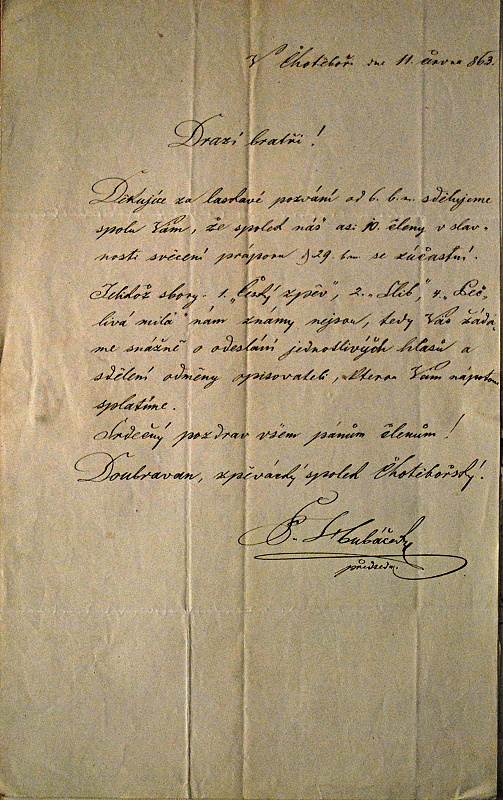 V Chotěboři dne 11. června 863.
Drazí bratři!
Děkujíce za laskavé pozvání od 6. b. m. sdělujeme
spolu Vám, že spolek náš asi 10. členy v slav-
nosti svěcení práporu 29. t.m. se zúčastní.
Jelikož sbory. 1. „Český zpěv", 2. „Slib", 4.
livá milá" nám známy nejsou, tedy Vás žádá-
me snážně o odeslání jednotlivých hlasů a
sdělení odměny opisovateli, kterou Vám nápotom
splatíme.
Srdečný pozdrav všem pánům členům!
Doubravan, zpěvácký spolek Chotěbořský.
předseda.